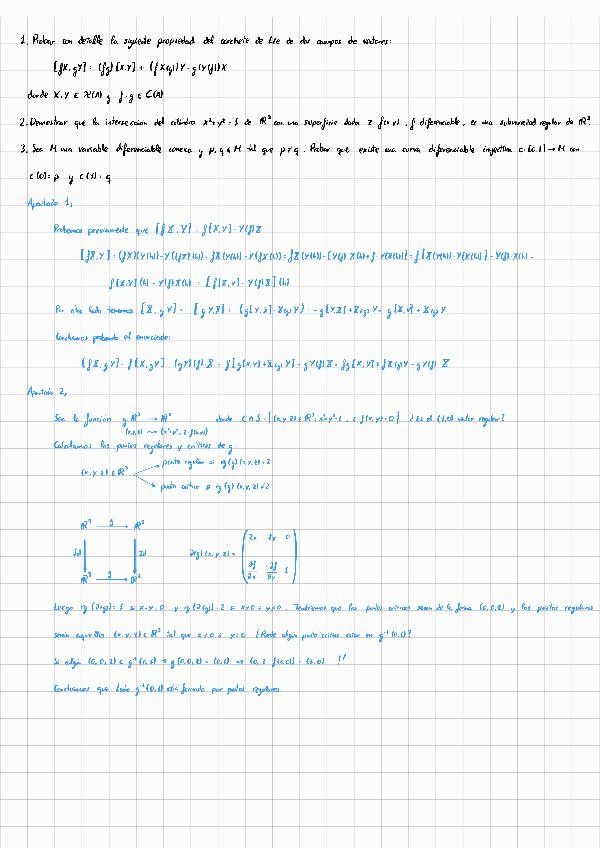 1. Probar con detalle la siguiente propiedad del corchete de Lie de dos campos de vectores:
[fX, gY] = (fg)[X,Y] + (f X(g))Y - g(Y(f))X
donde X, Y ∈ 𝔛(M) y f, g ∈ C(M)
2. Demostrar que la intersección del cilindro x²+y²=1 de ℝ³ con una superficie dada z=f(x,y), f diferenciable, es una subvariedad regular de ℝ³.
3. Sea M una variedad diferenciable conexa y p, q ∈ M tal que p≠q. Probar que existe una curva diferenciable inyectiva c:[0,1]→M con
c(0)=p y c(1)=q
Apartado 1,
Probemos previamente que [fX, Y] = f[X,Y] - Y(f)X
[fX,Y] = (fX)(Y(h)) - Y((fX)(h)) = fX(Y(h)) - Y(fX(h)) = fX(Y(h)) - [Y(f)·X(h) + f·Y(X(h))] = f[X(Y(h)) - Y(X(h))] - Y(f)·X(h) =
f[X,Y](h) - Y(f)X(h) = [f[X,Y] - Y(f)X](h)
Por otro lado tenemos [X, gY] = -[gY, X] = -(g[Y,X] - X(g)Y) = -g[Y,X] + X(g)Y = g[X,Y] + X(g)Y
Concluimos probando el enunciado:
[fX, gY] = f[X, gY] - (gY)(f)·X = f[g[X,Y] + X(g)Y] - gY(f)X = fg[X,Y] + fX(g)Y - gY(f)X
Apartado 2,
Sea la función g: ℝ³ → ℝ² donde C∩S = {(x,y,z) ∈ ℝ³: x²+y²=1, z-f(x,y)=0} ¿Es el (1,0) valor regular?
(x,y,z) ⟿ (x²+y², z-f(x,y))
Calculamos los puntos regulares y críticos de g.
punto regular si rg(g)(x,y,z)=2
(x,y,z) ∈ ℝ³
punto crítico si rg(g)(x,y,z)≠2
ℝ³ g→ ℝ²
Id Id ∂(g)(x,y,z) = (2x 2y 0
ℝ³ g→ ℝ² -∂f/∂x -∂f/∂y 1)
Luego rg(∂(g))=1 si x=y=0 y rg(∂(g))=2 si x≠0 ó y≠0. Tendremos que los puntos críticos serán de la forma (0,0,z) y los puntos regulares
serán aquellos (x,y,z) ∈ ℝ³ tal que x≠0 ó y≠0 ¿Puede algún punto crítico estar en g⁻¹(1,0)?
Si algún (0,0,z) ∈ g⁻¹(1,0) → g(0,0,z) = (1,0) → (0, z-f(0,0)) = (1,0) !!
Concluimos que todo g⁻¹(1,0) está formado por puntos regulares